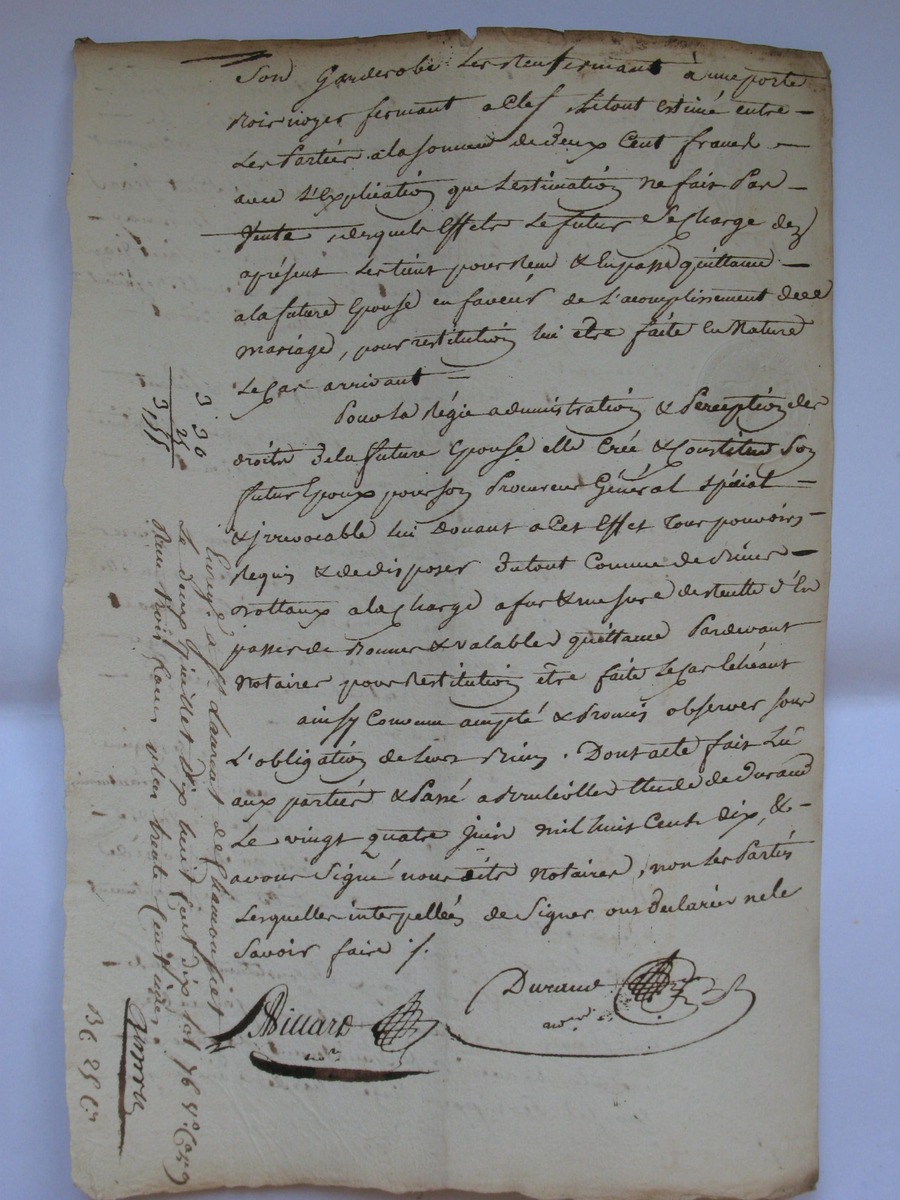 Son Garderobe Les Renfermant à une porte
Bois noyer fermant a Clef, Le tout Estimé entre
Les Parties a la Somme de deux Cent francs
avec L'Explication que Lestimation ne fait Pas
Vente, desquels Effets Le futur Se Charge dez
aprésent Les tient pour Reçu & En passe quittance
a la future Epouse en faveur de L'acomplissement de ce
mariage, pour restitution lui etre faite En Nature
Le Cas arrivant
Pour La Régie administration & Perception des
droits de la future Epouse elle Crée & Constitue Son
futur Epoux pour Son Procureur Général Spécial
& jrrevocable lui Donant a Cet Effet Tous pouvoirs
Requis & de disposer du tout Comme de Biens
Dottaux a la Charge a fur & mesure de recette d'En
passer de Bonnes & valables quittances Pardevant
Notaires pour Restitution être faite Le Cas Echéant
ainsy Convenu accepté & Promis observer sous
L'obligation de Leurs Biens. Dont acte fait Lu
aux parties & Passé a Etude de Durand
Le vingt quatre Juin mil huit Cent dix, &
avons Signé nous dits Notaires, non les Parties
Lesquelles interpellées de Signer ont déclarées ne le
Savoir faire ./.
Durand
Billard
not.re
3 30
25
3,55
Enreg.é a St Laurent de Chamousset
Le deux Juillet dix huit Cent dix fol. 76 v.o C.es
Reçu trois francs plus trente Centimes